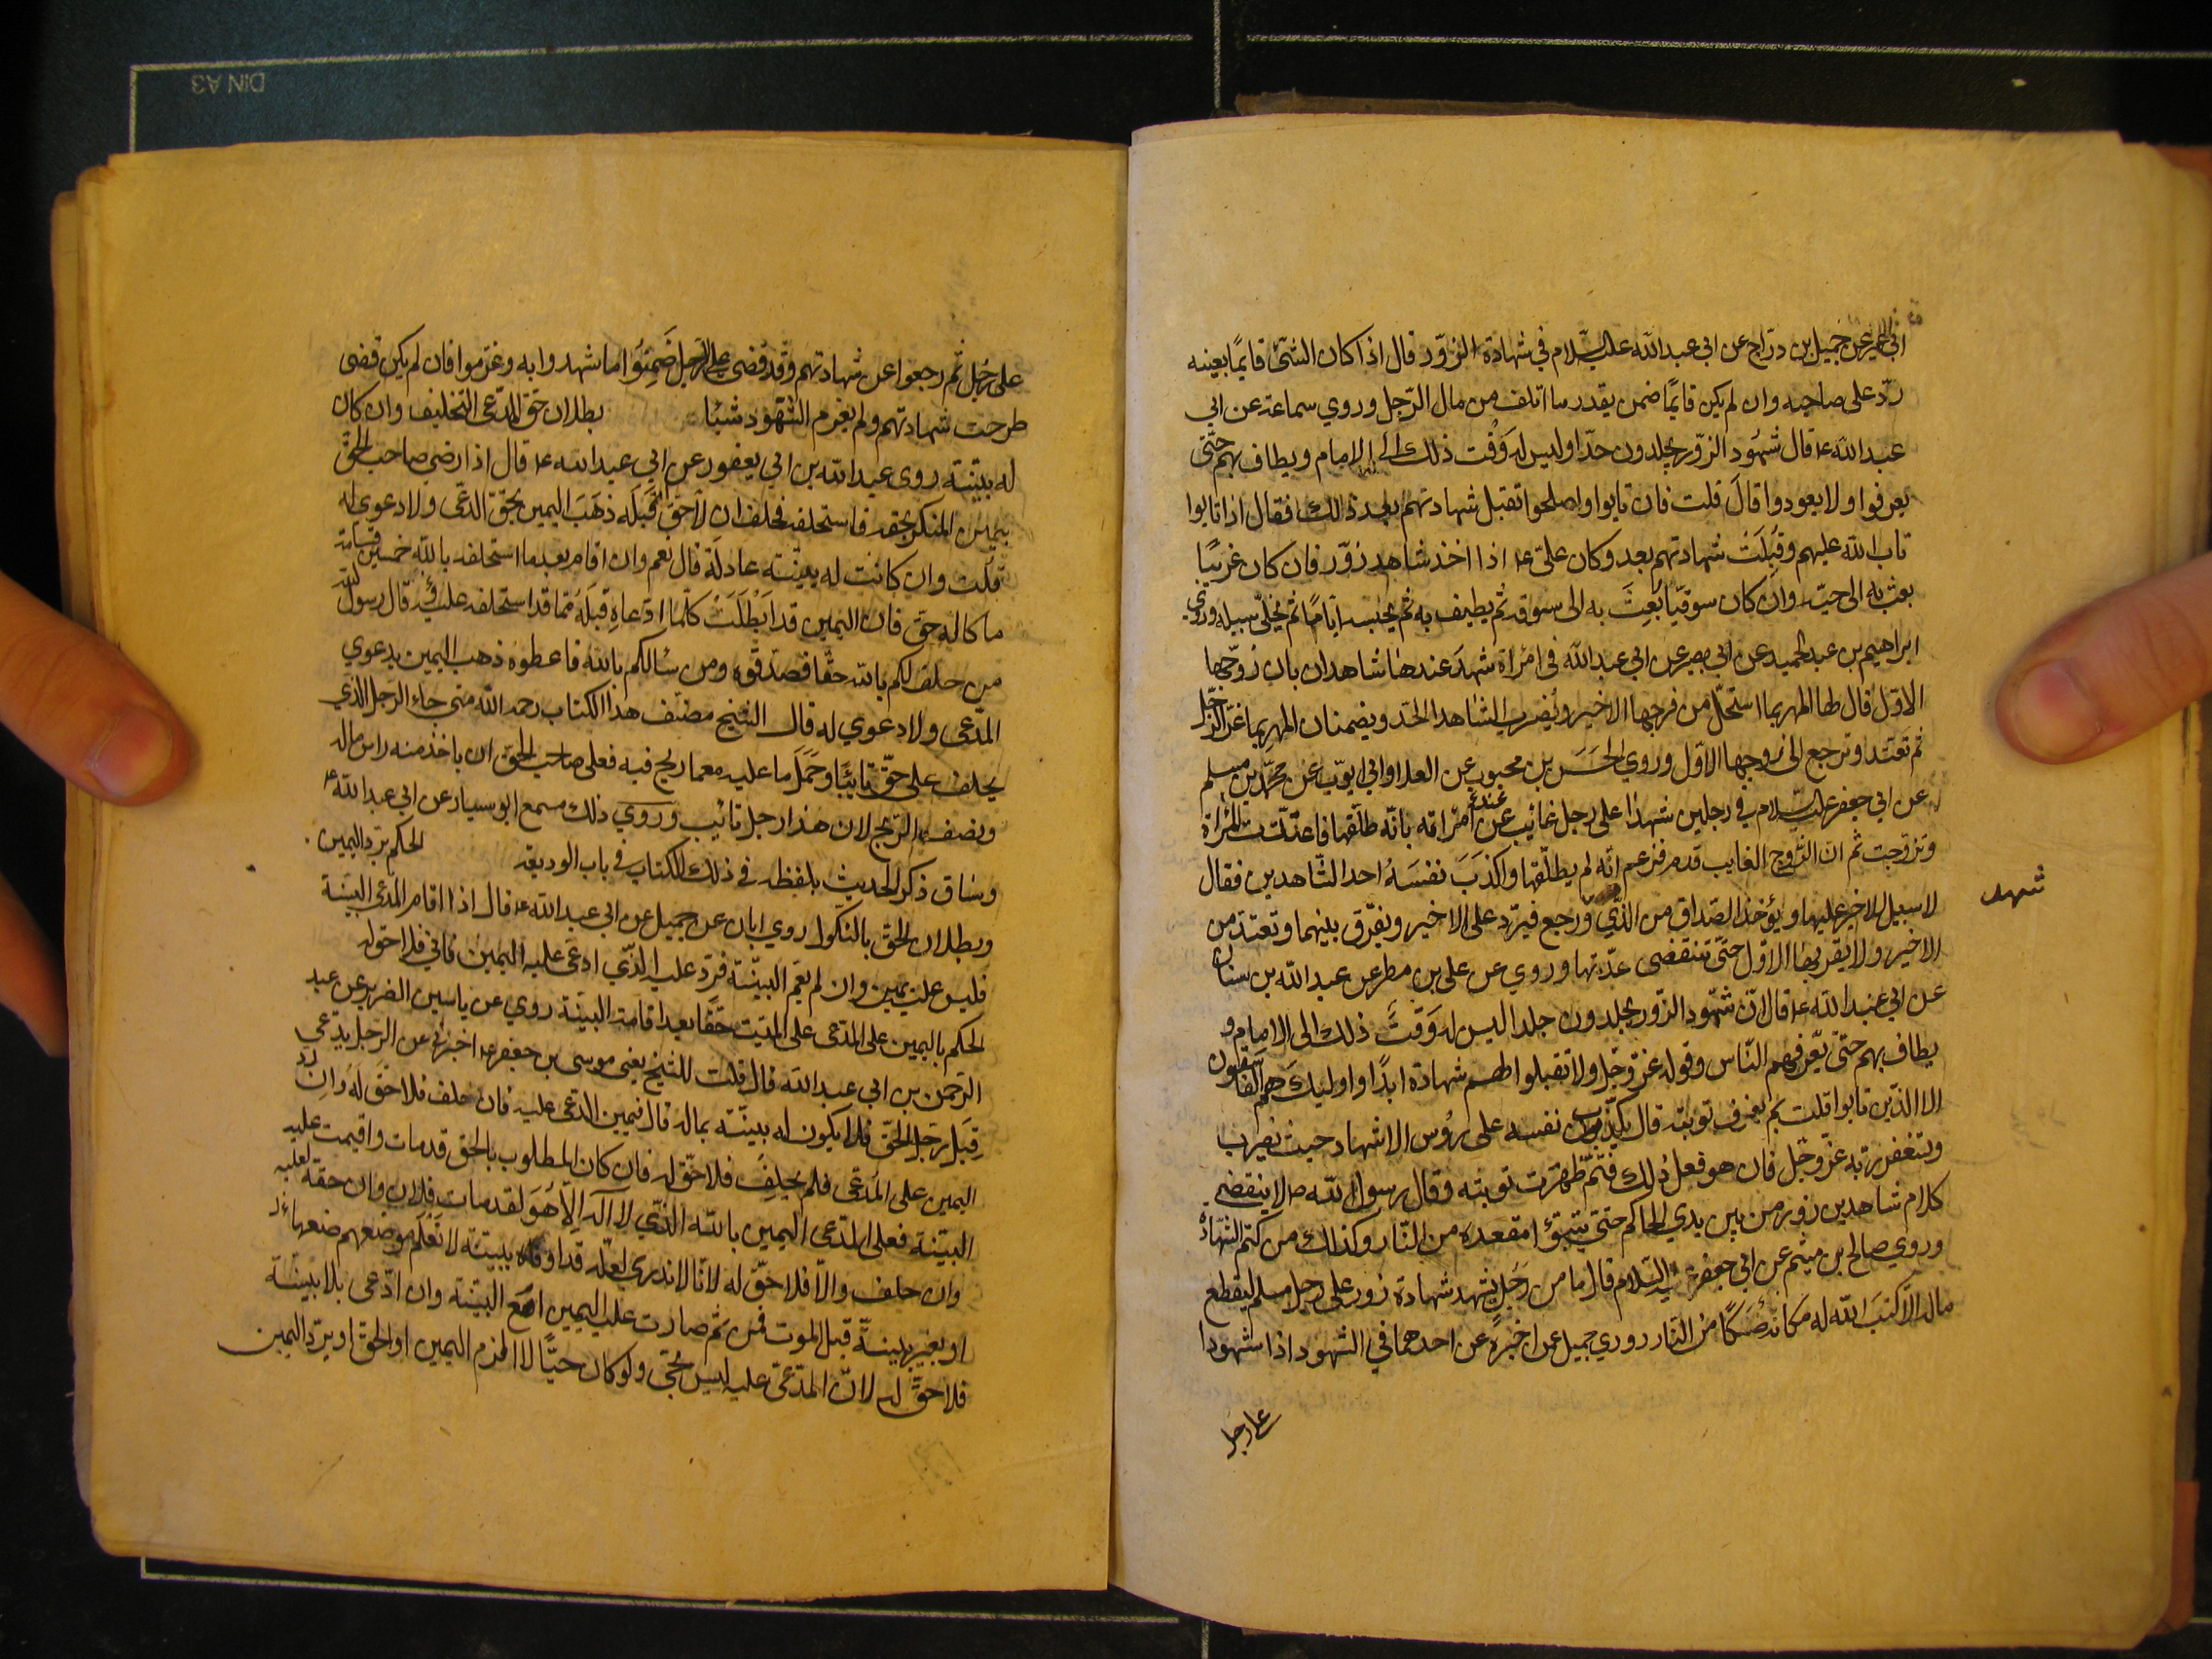 ابي عمير عن جميل بن درّاج عن ابي عبد الله عليه السّلام في شهادة الزّور قال اذا كان الشئ قايمًا بعينه
ردّ على صاحبه وان لم يكن قايمًا ضمن بقدر ما اتلف من مال الرّجل وروي سماعة عن ابي
عبد الله ع قال شهُود الزّور يجلدون حدّا وليس له وَقت ذلك الى الامام ويطاف بهم حتّى
يعرفوا ولا يعودوا قالَ قلت فان تابوا واصلحوا تقبل شهادتهم بعد ذلك فقال اذا تابوا
تاب الله عليهم وقُبِلَتْ شهادتهم بعد وكان علىّ ع اذا اخذ شاهد زوّر فان كان غريبًا
بعث به الى حيّه وان كان سوقيّا بُعِثَ به الى سوقه ثم يطيف به ثم يحبسه ايّامًا ثم يخلّى سبيله وروي
ابراهيم بن عبد الحميد عن ابي بصير عن ابي عبد الله في امراة شهدَ عندها شاهدان بان زوّجها
الاوّل قال لها المهر بما استحلّ من فرجها الاخير ويُضرب الشاهد الحّد ويضمنان المهر بما غرّ الرّجل
ثم تعتد وترجع الى زوجها الاوّل وروي الحَسَن بن محبوب عن العلا وابي ايوّب عن محمّد بن مسلم
عن ابي جعفر عليه السّلام في رجلين شهدا على رجل غائب عن امراته بانّه طلّقها فاعتدّت المراة
عند
وتزوّجت ثم ان الزّوج الغايب قدم فزعم انّه لم يطلّقها واكذَبَ نفسَهُ احد الشّاهدين فقال
شهد
لا سبيل للاخير عليها ويؤخذ الصّداق من الذّي ورجع فيردّ على الاخير ويفرّق بينهما وتعتدّ من
الاخير ولا يقربها الاوّل حتّى تنقضى عدّتها وروي عن على بن مطر عن عبد الله بن سنان
عن ابي عبد الله ع قال انّ شهُود الزّور يجلدون جلدا ليس له وَقتَّ ذلك الى الامام و
يطاف بهم حتى يعّرفهم النّاس وقوله عزّ وجّل ولا تقبلوا لهم شهادة ابدًا واوليك هم الفاسقون
الا الذّين تابوا قلت بم يعرف توبته قال يكذّب نفسه على رؤس الاشهاد حيث يضرب
وتستغفر ربّه عزّ وجّل فان هو فعل ذلك فثمّ ظهرَت توبته وقال رسول الله ص لا ينقضي
كلام شاهدين زور من بين يدي الحاكم حتى يتبوّا مقعده من النّار وكذلك من كتم الشهادة
وروي صالح بن ميثم عن ابي جعفر عليه السّلام قال ما من رَجَل يشهد شهادة زور على رجل مسلم ليقطع
ماله الاّ كتبَ الله له مكانه صَكًا من النار وروي جميل عن اخبره عن احدهما في الشهود اذا شهدوا
على رجل
على رجُل ثم رجعوا عن شهادتهم وقد قضى على الرّجل ضَمِنُوا ما شهدوا به وغرّموا فان لم يكن قضى
طرحت شهادتهم ولم يغرم الشهُود شيئا بطلان حقّ المدّعى التحليف وان كان
له بيّنة روى عبد الله بن ابي يعفور عن ابي عبد الله ع قال اذا رضى صاحب الحّق
بيمين المنكر بحقه فاستحلفه فحلف ان لا حَقّ قِبَلَه ذهَبَ اليمين بحّق المدّعى ولا دعوى له
قلت وان كانت له بيّنة عادلة قال نعم وان اقام بعد ما استحلفه بالله خمسين قسامة
ما كان له حقّ فان اليمين قد ابْطَلَتْ كلّما ادّعاه قِبَلَهُ ممّا قد استحلفه عليه قال رسول الله
من حلف لكم بالله حقّا فصدقّوه ومن سألكم بالله فاعطوه ذهب اليمين بدعوي
المدّعى ولا دعوي له قال الشيخ مصنّف هذا الكتاب رحمه الله متى جاء الرّجل الذّي
يحلف على حقّ تايبًا وحَمَلَ ما عليه مع ما ربح فيه فعلى صاحب الحّق ان ياخذ منه راس ماله
ونصف الرّبح لان هذا رجل تائب وروي ذلك مسمع ابو سيار عن ابي عبد الله ع
وساق ذكر الحديث بلفظه في ذلك الكتاب في باب الوديعة الحكم بردّ اليمين
وبطلان الحقّ بالنكّول روي ابان عن جميل عن ابي عبد الله ع قال اذا اقام المدّعى البيّنة
فليس عليه يمين وان لم يقم البيّنة فردّ عليه الذّي ادّعى عليه اليمين فابي فلا حقّ له
الحكم باليمين على المدّعى على الميّت حَقًا بعد اقامة البيّنة روي عن ياسين الضرير عن عبد
الرّحمن بن ابي عبد الله قال قلت للشّيخ يعني موسى بن جعفر ع اخبرني عن الرجل يدّعي
قِبَل رجل الحّق فلا يكون له بيّنة بماله قال فيمين المدّعى عليه فان حلف فلا حَقّ له وان ردّ
اليمين على المدّعى فلم يحلف فلا حّق له فان كان المطلوب بالحقّ قد مات واقيمت عليه
البيّنة فعلى المدّعى اليمين بالله الذّي لا اله الّا هُوَ لقد مات فلان وان حقّه لعليه
وان حلف والاّ فلا حّق له لانّا لا ندري لعلّه قد اوفاه ببيّنة لا نَعْلَم موضعهم
او بغير بيّنة قبل الموت فمن ثم صارت عليه اليمين مع البيّنة وان ادّعى بلا بيّنة
فلا حَقّ له لانّ المدّعى عليه ليس بحّى ولو كان حيًّا لالزم اليمين او الحقّ او يردّ اليمين